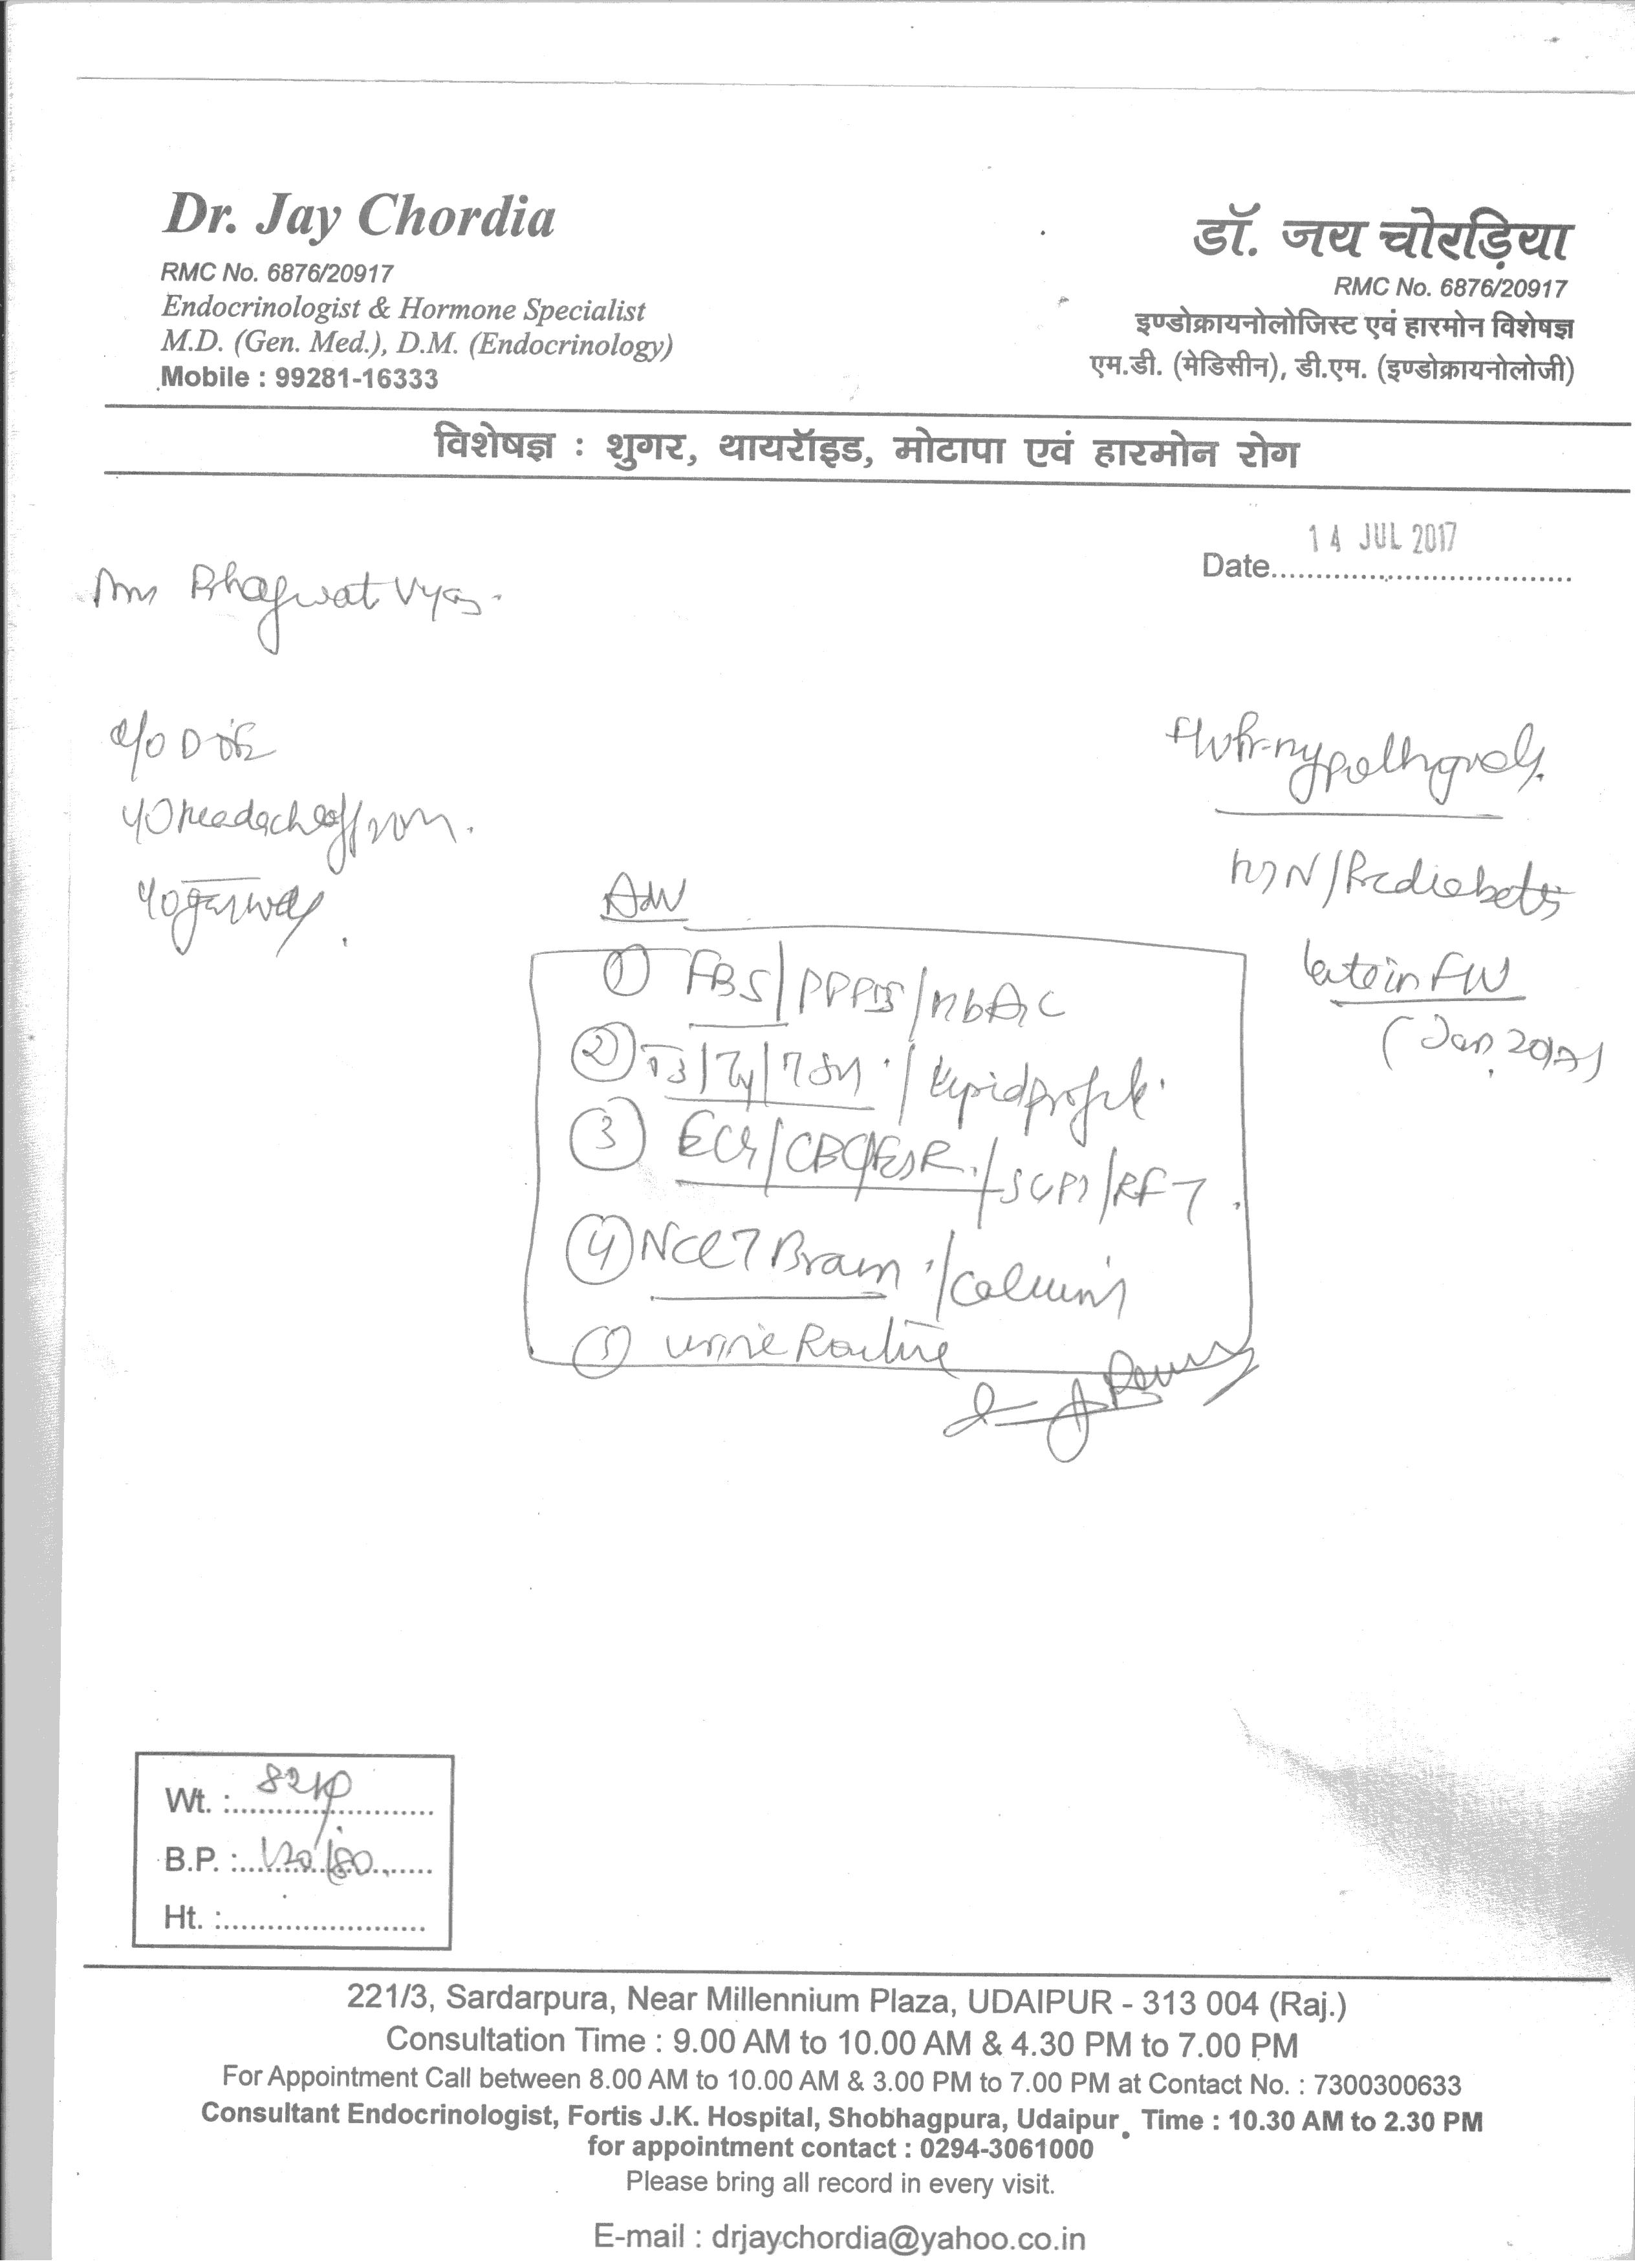 Dr. Jay Chordia
RMC No. 6876/20917
Endocrinologist & Hormone Specialist
M.D. (Gen. Med.), D.M. (Endocrinology)
Mobile : 99281-16333
डॉ. जय चोरड़िया
RMC No. 6876/20917
इण्डोक्रायनोलोजिस्ट एवं हारमोन विशेषज्ञ
एम.डी. (मेडिसीन), डी.एम. (इण्डोक्रायनोलोजी)
विशेषज्ञ : शुगर, थायरॉइड, मोटापा एवं हारमोन रोग
Date 14 JUL 2017
Bhagwat Vyas
headache
HTN/Prediabetes
late in FW
(Jan, 2017)
Adv
① FBS/PPBS/HbA1C
② T3/T4/TSH/Lipid profile
③ ECG/CBC/ESR/SGPT/RFT
④ NCCT Brain/Calcium
⑤ Urine Routine
Wt. : 82 kg
B.P. : 120/80
Ht. :
221/3, Sardarpura, Near Millennium Plaza, UDAIPUR - 313 004 (Raj.)
Consultation Time : 9.00 AM to 10.00 AM & 4.30 PM to 7.00 PM
For Appointment Call between 8.00 AM to 10.00 AM & 3.00 PM to 7.00 PM at Contact No. : 7300300633
Consultant Endocrinologist, Fortis J.K. Hospital, Shobhagpura, Udaipur. Time : 10.30 AM to 2.30 PM
for appointment contact : 0294-3061000
Please bring all record in every visit.
E-mail : drjaychordia@yahoo.co.in